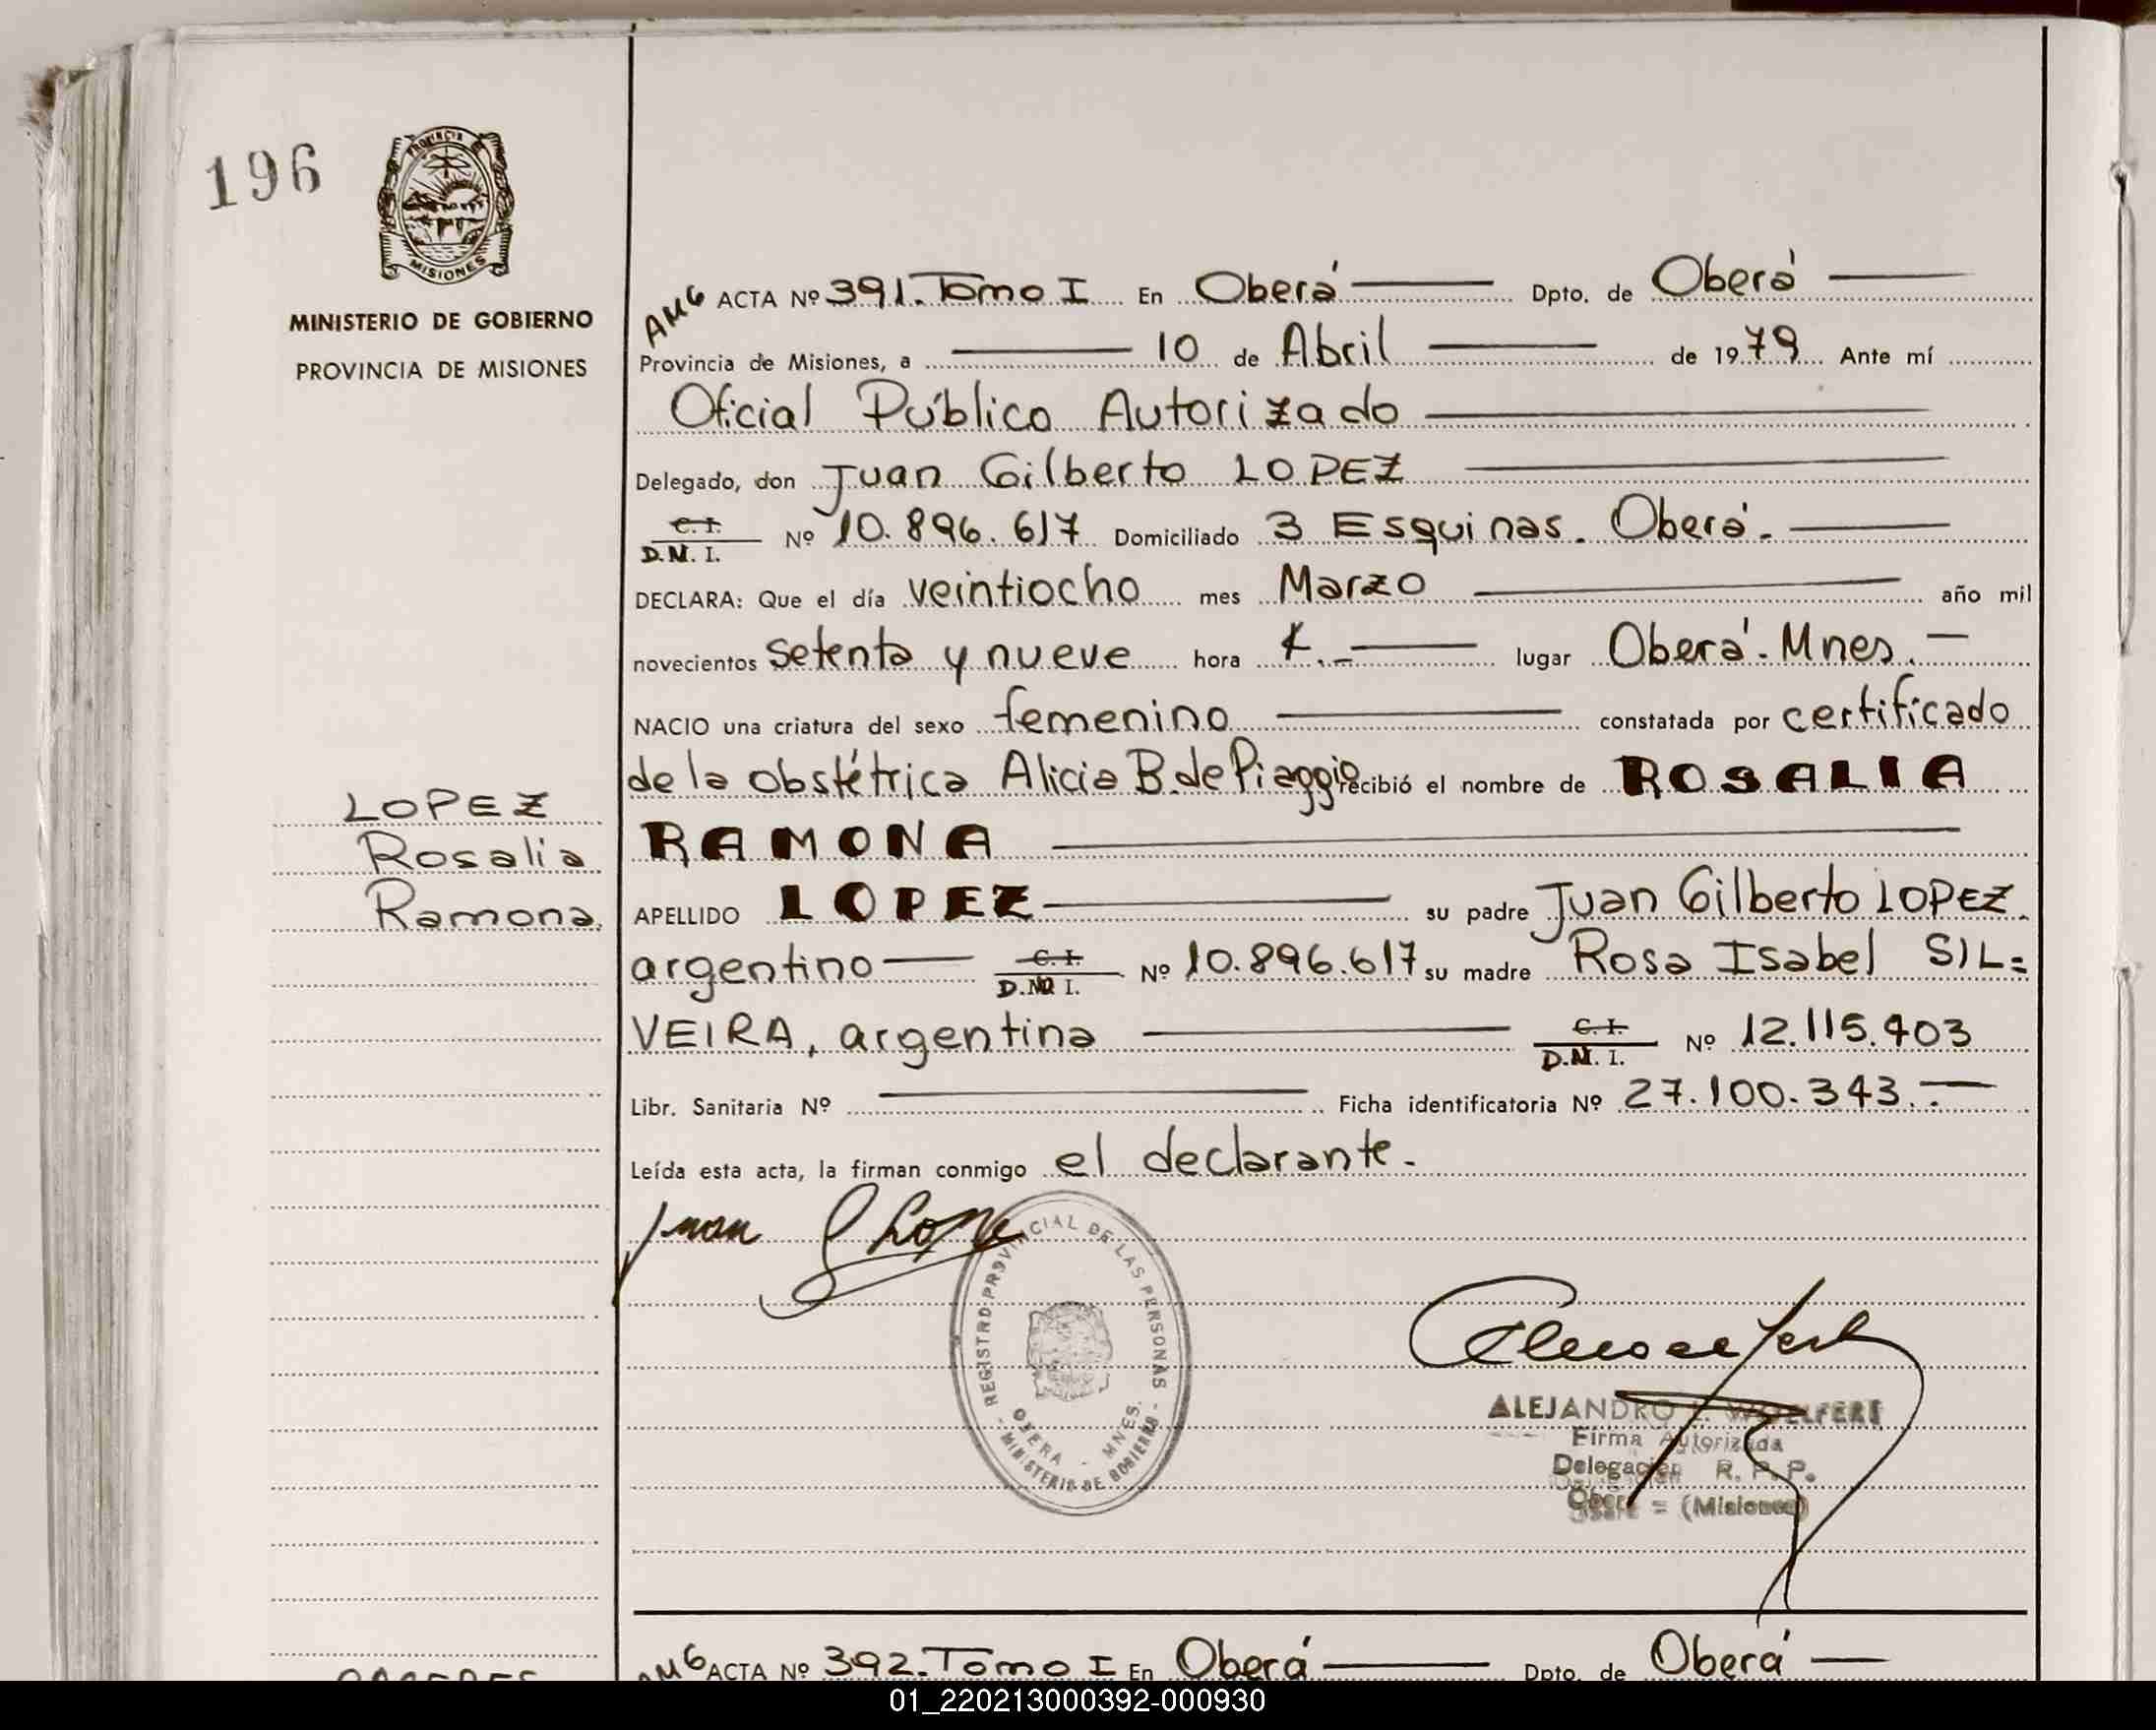 196
PROVINCIA DE
MISIONES
MINISTERIO DE GOBIERNO
PROVINCIA DE MISIONES
LOPEZ
Rosalia
Ramona.
AMG ACTA Nº 391. Tomo I En Oberá Dpto. de Oberá
Provincia de Misiones, a 10 de Abril de 1979 Ante mí
Oficial Público Autorizado
Delegado, don Juan Gilberto LOPEZ
C. I.
D.N. I. Nº 10.896.617 Domiciliado 3 Esquinas. Oberá.
DECLARA: Que el día veintiocho mes Marzo año mil
novecientos setenta y nueve hora lugar Oberá. Mnes.
NACIO una criatura del sexo femenino constatada por certificado
de la obstétrica Alicia B. de Piaggio recibió el nombre de ROSALIA
RAMONA
APELLIDO LOPEZ su padre Juan Gilberto LOPEZ.
argentino C. I. Nº 10.896.617 su madre Rosa Isabel SIL=
D.N. I.
VEIRA, argentina C. I. Nº 12.115.403
D.N. I.
Libr. Sanitaria Nº Ficha identificatoria Nº 27.100.343.-
Leída esta acta, la firman conmigo el declarante.
Juan G Lopez
REGISTRO PROVINCIAL DE LAS PERSONAS
OBERA - MNES.
- MINISTERIO DE GOBIERNO -
ALEJANDRO WOELFERT
Firma Autorizada
Delegación R. P. P.
Oberá = (Misiones)
AMG ACTA Nº 392. Tomo I En Oberá Dpto. de Oberá
01_220213000392-000930